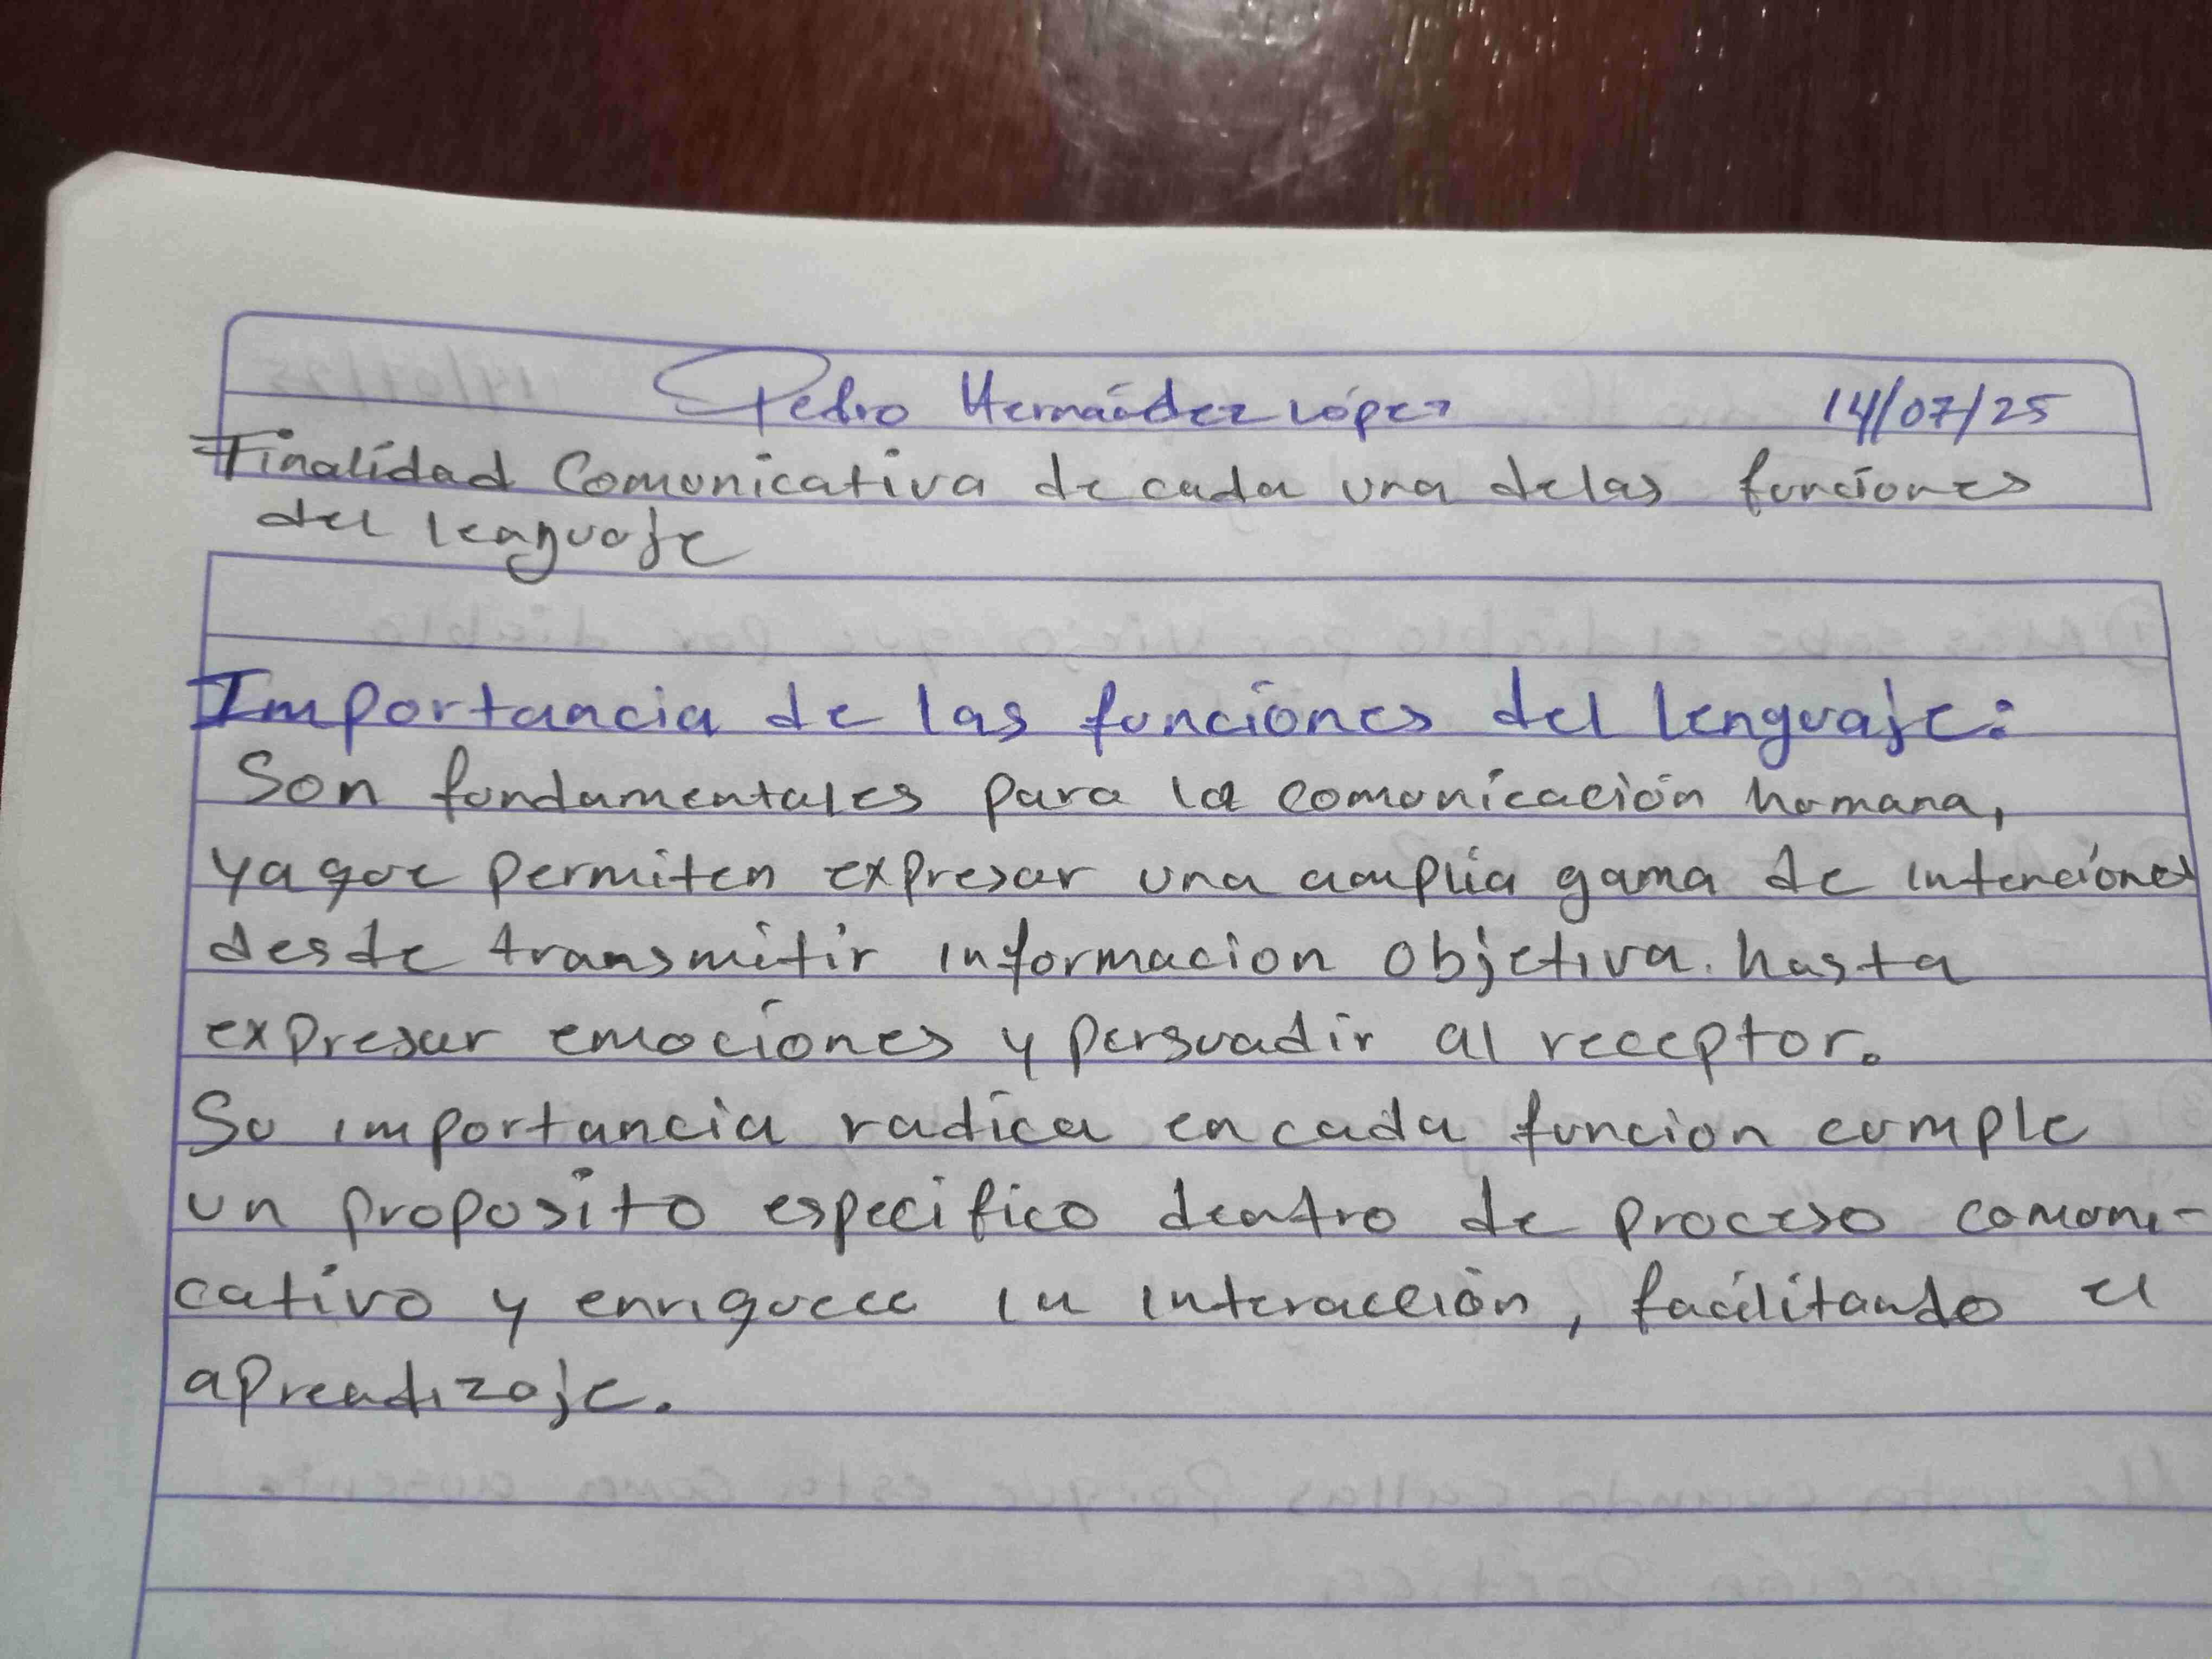 Pedro Hernández López 14/07/25
Finalidad Comunicativa de cada una delas funciones
del lenguaje
Importancia de las funciones del lenguaje:
Son fundamentales para la comunicación humana,
ya que permiten expresar una amplia gama de intenciones
desde transmitir informacion objetiva. hasta
expresar emociones y persuadir al receptor.
Su importancia radica en cada funcion cumple
un proposito especifico dentro de proceso comuni-
cativo y enriquece la interacción, facilitando el
aprendizaje.